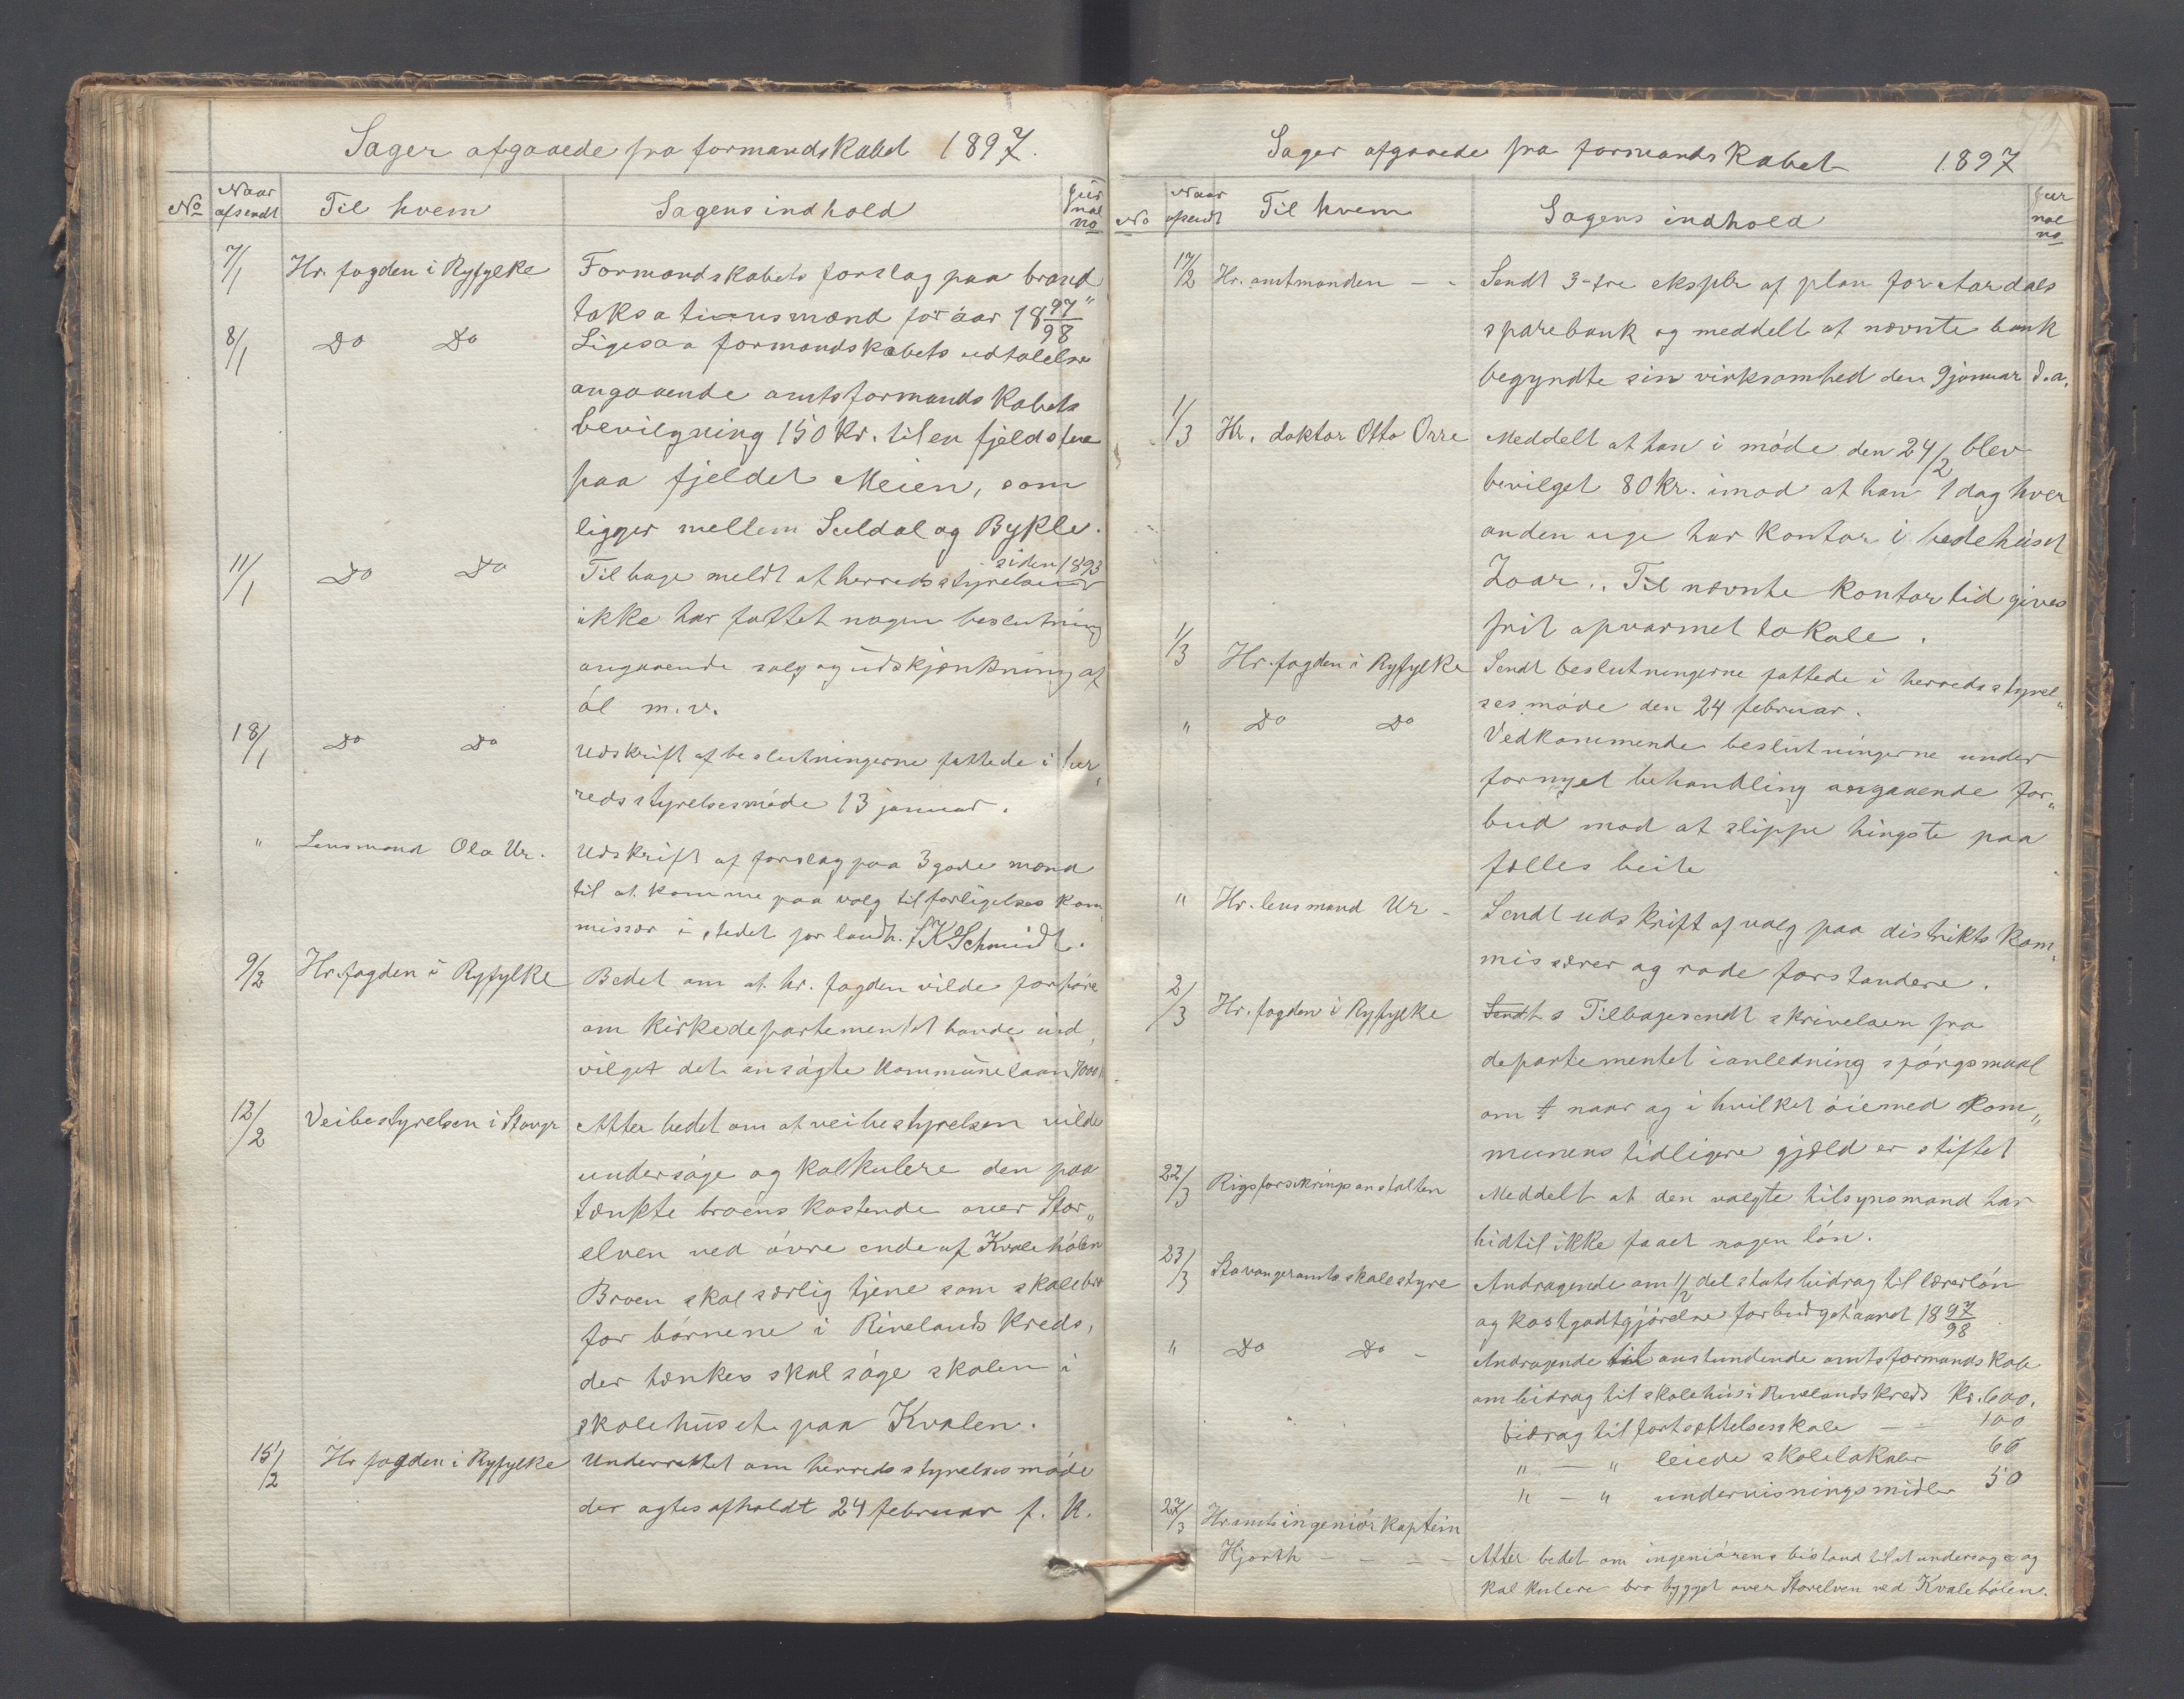 Sager afgaaede fra formandskabet 1897.
No Naar afsendt Til hvem Sagens indhold Jur nal no
7/1 Hr. fogden i Ryfylke Formandskabets forslag paa brand
taksationsmænd for áar 18 97/98"
8/1 Do Do Ligesaa formandskabets udtalelse
angaaende amtsformandskabets
bevilgning 150 kr. til en fjeldstue
paa fjeldet Meien, som
ligger mellem Suldal og Bykle.
siden 1893
11/1 Do Do Tilbage meldt at herredsstyrelsen
ikke har fattet nogen beslutning
angaaende salg og udskjænkning af
ól m.v.
18/1 Do Do Udskrift af beslutningerne fattede i her„
redsstyrelsesmóde 13 januar.
" Lensmand Ola Ur. Udskrift af forslag paa 3 gode mænd
til at komme paa valg til forligelses kom„
missær i stedet for landh. SK Schmidt.
9/2 Hr. fogden i Ryfylke Bedet om at hr. fogden vilde forhóre
om kirkedepartementet havde ind„
vilget det ansógte kommunelaan 7000
12/2 Veibestyrelsen i Stavgr Atter bedet om at veibestyrelsen vilde
undersóge og kalkulere den paa
tænkte broens kostende over Stor„
elven ved óvre ende af Kvalehólen
Broen skal særlig tjene som skolebro
for bórnene i Rivelands kreds,
der tænkes skal sóge skolen i
skolehuset paa Kvalen.
15/2 Hr fogden i Ryfylke Underrettet om herredsstyrelses móde
der agtes afholdt 24 februar f. k.
Sager afgaaede fra formandskabet 1897
No Naar afsendt Til hvem Sagens indhold Jur nal no
17/2 Hr. amtmanden - - Sendt 3-tre eksplr af plan for Aardals
sparebank og meddelt at nævnte bank
begyndte sin virksomhed den 9 januar d.a.
1/3 Hr. doktor Otto Orre Meddelt at han i móde den 24/2 blev
bevilget 80 kr. imod at han 1 dag hver
anden uge har kontor i bedehuset
Zoar.. Til nævnte kontortid gives
frit opvarmet lokale.
1/3 Hr. fogden i Ryfylke Sendt beslutningerne fattede i herredsstyrel„
ses móde den 24 februar.
" Do Do Vedkommende beslutningerne under
fornyet behandling angaaende for„
bud mod at slippe hingste paa
fælles beite
" Hr. lensmand Ur - Sendt udskrift af valg paa distrikts kom„
missærer og rode forstandere.
2/3 Hr. fogden i Ryfylke Sendt s Tilbagesendt skrivelsen fra
departementet i anledning spórgsmaal
om t naar og i hvilket óiemed kom„
munens tidligere gjæld er stiftet
22/3 Rigsforsikringsanstalten Meddelt at den valgte tilsynsmand har
hidtil ikke faaet nogen lón.
23/3 Stavanger amts skolestyre Andragende om 1/2 del statsbidrag til lærerlón
og kostgodtgjórelse for budgetaaret 18 97/98.
" Do Do - Andragende til anstundende amtsformandskab
om bidrag til skolehus i Rivelands kreds kr. 600.
bidrag til fortsættelsesskole - - 100
" - " leiede skolelokaler 66
" - " undervisningsmidler 50
27/3 Hr. amtsingeniór kaptein
Hjorth - - - - Atter bedet om ingeniórens bistand til at undersóge og
kalkulere bro bygget over Storelven ved Kvalehólen.